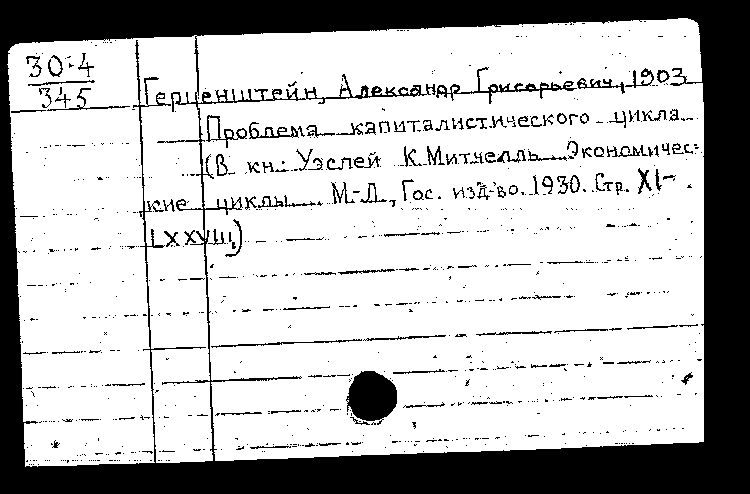 30-4
345
Герценштейн, Александр Григорьевич, 1903
Проблема капиталистического цикла
(В кн: Уэслей К. Митчелль. Экономичес-
кие циклы. М.-Л., Гос. изд-во. 1930. Стр. XI-
LXXVIII)